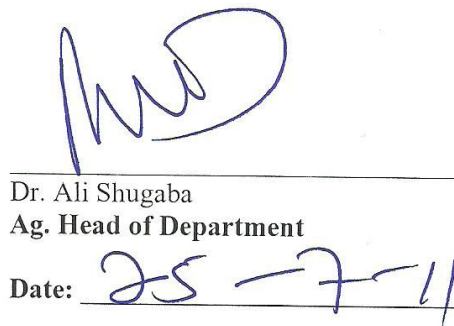 Dr. Ali Shugaba
Ag. Head of Department
Date: 25-7-11